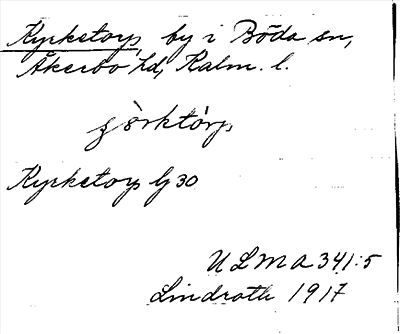 Kyrketorp, by i Böda sn,
Åkerbo hd, Kalm. l.
Kyrketorp lj 30
ULMA 341:5
Lindroth 1917